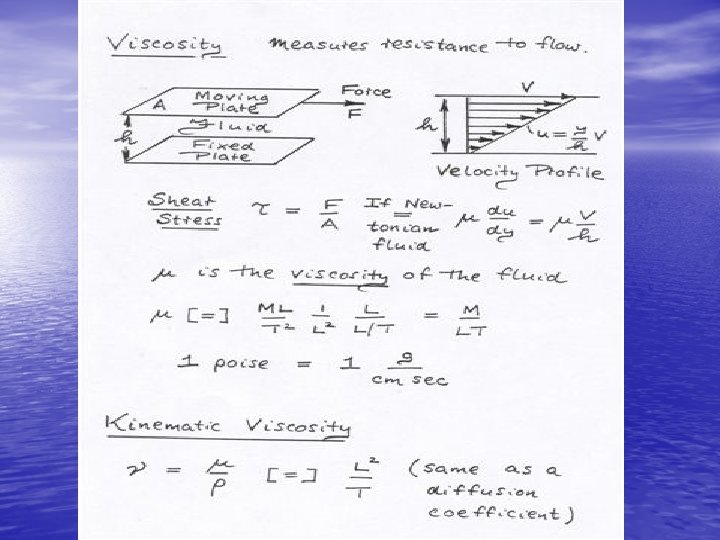 Viscosity measures resistance to flow.
A Moving Plate Force F
h Fluid
Fixed Plate
V
h u = y/h V
Velocity Profile
Shear Stress τ = F/A = If Newtonian fluid μ du/dy = μ V/h
μ is the viscosity of the fluid
μ [=] ML/T² 1/L² L/L/T = M/LT
1 poise = 1 g/cm sec
Kinematic Viscosity
ν = μ/ρ [=] L²/T (same as a
diffusion
coefficient)